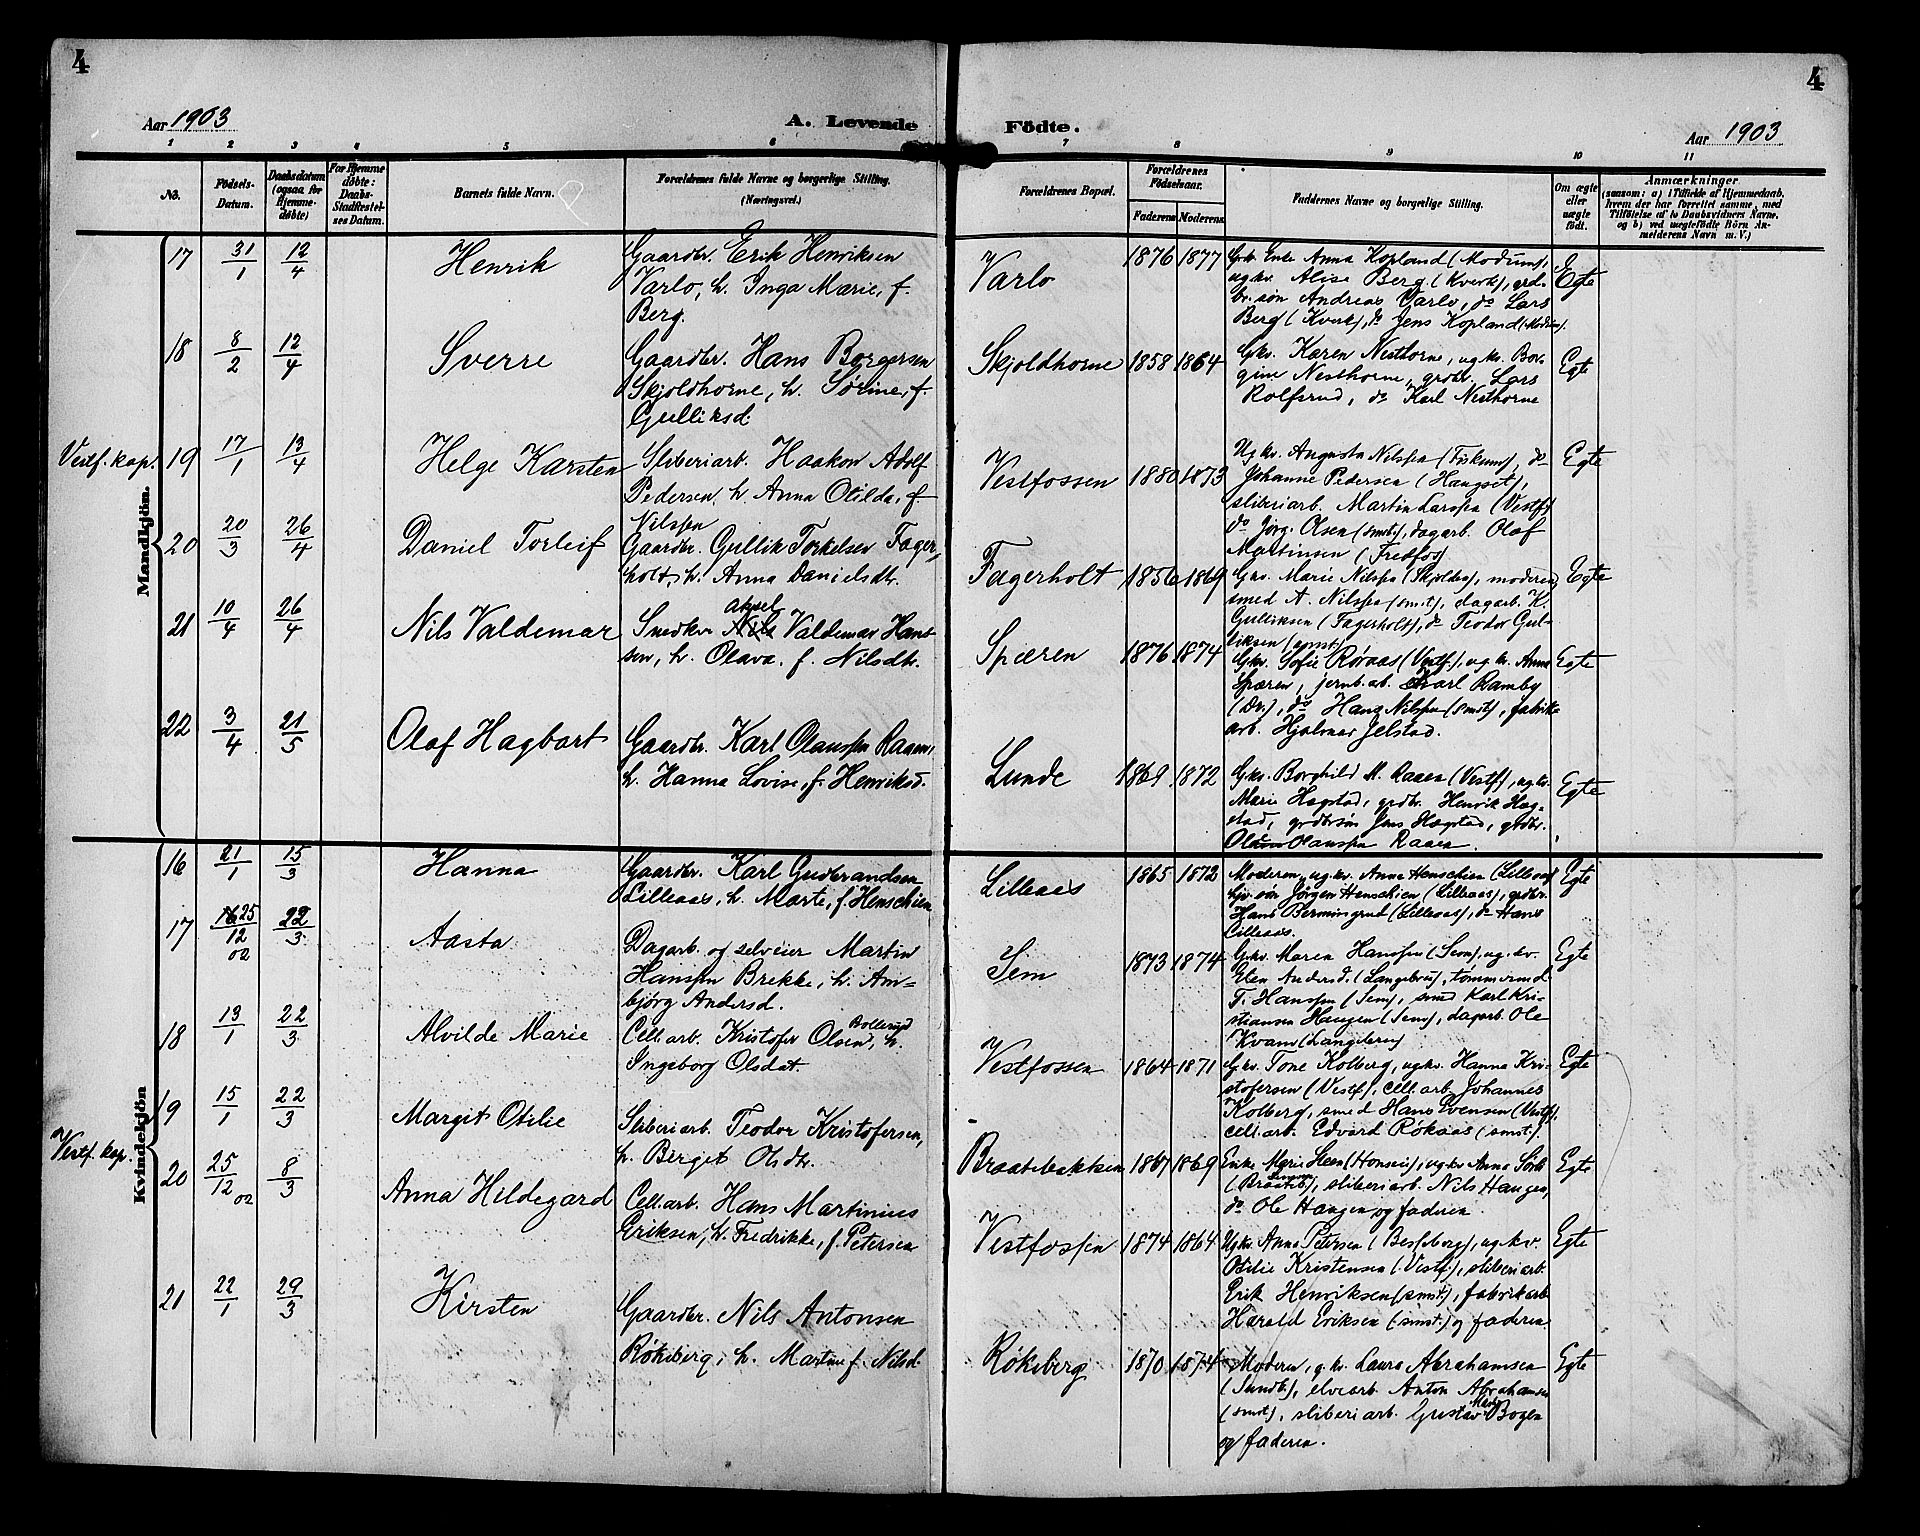 4
4
Aar 1903
A. Levende
Födte.
Aar 1903
1 2 3 4 5 6 7 8 9 10 11
No.
Födsels-
Datum.
Daabsdatum
(ogsaa for
Hjemme-
døbte)
For Hjemme
døbte:
Daabs-
Stadfæstel-
ses Datum.
Barnets fulde Navn.
Forældrenes fulde Navne og borgerlige Stilling.
(Næringsvei.)
Forældrenes Bopæl.
Forældrenes
Födselsaar.
Faderens Moderens
Faddernes Navne og borgerlige Stilling.
Om ægte
eller
uægte
født.
Anmærkninger
(saasom: a) i Tilfælde af Hjemmedaab,
hvem der har forrettet samme, med
Tilföielse af to Daabsvidners Navne,
og b) ved uægtefödte Börn An-
melderens Navn m. V.)
Mandkjön.
17 31/1 12/4 Henrik
Gaardbr. Erik Henriksen
Varlo, h. Inga Marie, f.
Berg.
Varlo 1876 1877
Grb. Enke Anna Kopland (Modum),
ug.kv. Alise Berg (Kverk), grd-
br. søn Andreas Varlo, do Lars
Berg (Kverk), do Jens Kopland (Modum).
Egte
18 8/2 12/4 Sverre
Gaardbr. Hans Borgersen
Skjoldhorne, h. Sørine, f.
Gulliksd.
Skjoldhorne 1858 1864
Gkv. Karen Nesthorne, ug.kv. Bor-
gine Nesthorne, grdbr. Lars
Rolfsrud, do Karl Nesthorne
Egte
Vestf. kap. 19 17/1 13/4 Helge Karsten
Sliberiarb. Haakon Adolf
Pedersen, h. Anna Otilda, f.
Nilssen
Vestfossen 1880 1873
Ug.kv. Augusta Nilssen (Fiskum), do
Johanne Pedersen (Haugset),
sliberiarb. Martin Larssen (Vestf.)
do Jørg. Olsen (smst.), dagarb. Olaf
Martinsen (Fredfos)
Egte
20 20/3 26/4 Daniel Torleif
Gaardbr. Gullik Torkelsen Fager-
holt, h. Anna Danielsdtr.
Fagerholt 1856 1869
Gkv. Marie Nilssen (Skjolden), moderen,
smed A. Nilssen (smst.), dagarb. K.
Gulliksen (Fagerholt), do Teodor Gul-
liksen (smst.)
Egte
21 10/4 26/4 Nils Valdemar
Aksel
Snedker Nils Valdemar Hans-
sen, h. Olava, f. Nilsdtr.
Spæren 1876 1874
Gkv. Sofie Røraas (Vestf.), ug.kv. Anna
Spæren, jernb.arb. Karl Ramby
(Dr.), do Hans Nilssen (smst.), fabrik-
arb. Hjalmar Jelstad.
Egte
22 3/4 21/5 Olaf Hagbart
Gaardbr. Karl Olanssen Raaen,
h. Hanna Lovise, f. Henriksd.
Lunde 1869 1872
Gkv. Borghild M. Raaen (Vestf.), ug.kv.
Marie Hagstad, grdbr. Henrik Hag-
stad, grdbrsøn Jens Hagstad, grdbr.
Olanssen Raaen.
Egte
Kvindekjön
16 21/1 15/3 Hanna
Gaardbr. Karl Gudbrandsen
Lilleaas, h. Marte, f. Henschien
Lilleaas 1865 1872
Moderen, ug.kv. Anna Henschien (Lilleaas)
søn Jørgen Henschien (Lilleaas), grdbr.
Hans Bermingrud (Lilleaas), do Hans
Lilleaas.
Egte
17 25/12 02 22/3 Aasta
Dagarb. og selveier Martin
Hanssen Brekke, h. Am-
björg Andersd.
Sem 1873 1874
Gkv. Maren Hanssen (Sem), ug.kv.
Elen Andersd. (Langebru), tømmermd
T. Hanssen (Sem), smed Karl Kri-
stiansen Haugen (Sem), dagarb. Ole
Kvam (Langebru)
Egte
18 13/1 22/3 Alvilde Marie
Cell.arb. Kristofer Olsen Bollerud, h.
Ingeborg Olsdat.
Vestfossen 1864 1871
Gkv. Tone Kolberg, ug.kv. Hanna Kri-
stofersen (Vestf.), cell. arb. Johannes
Kolberg, smed Hans Evensen (Vestf.),
cell. arb. Edvard Røkaas (smst.).
Egte
19 15/1 22/3 Margit Otilie
Sliberiarb. Teodor Kristofersen,
h. Berget Olsdtr.
Braatebakken 1867 1869
Enke Marie Steen (Honsei), ug.kv Anna
(Braateb), sliberiarb. Nils Haugen,
do Ole Haugen og faderen.
Egte
Vestf. kap. 20 25/12 02 8/3 Anna Hildegard
Cell.arb. Hans Martinius
Eriksen, h. Fredrikke, f. Petersen
Vestfossen 1874 1864
Ug.kv. Anna Petersen (Besseberg), ug.kv.
Otilie Kristensen (Vestf.), sliberiarb.
Erik Henriksen (smst.), fabrikarb
Harald Eriksen (smst.) og faderen.
Egte
21 22/1 29/3 Kirsten
Gaardbr. Nils Antonsen
Røkeberg, h. Martine f. Nilsd.
Røkeberg 1870 1874
Moderen, g.kv. Laura Abrahamsen
(Sundb.), elvearb. Anton Abrahamsen
(smst.), sliberiarb. Gustav Bogen
og faderen.
Egte